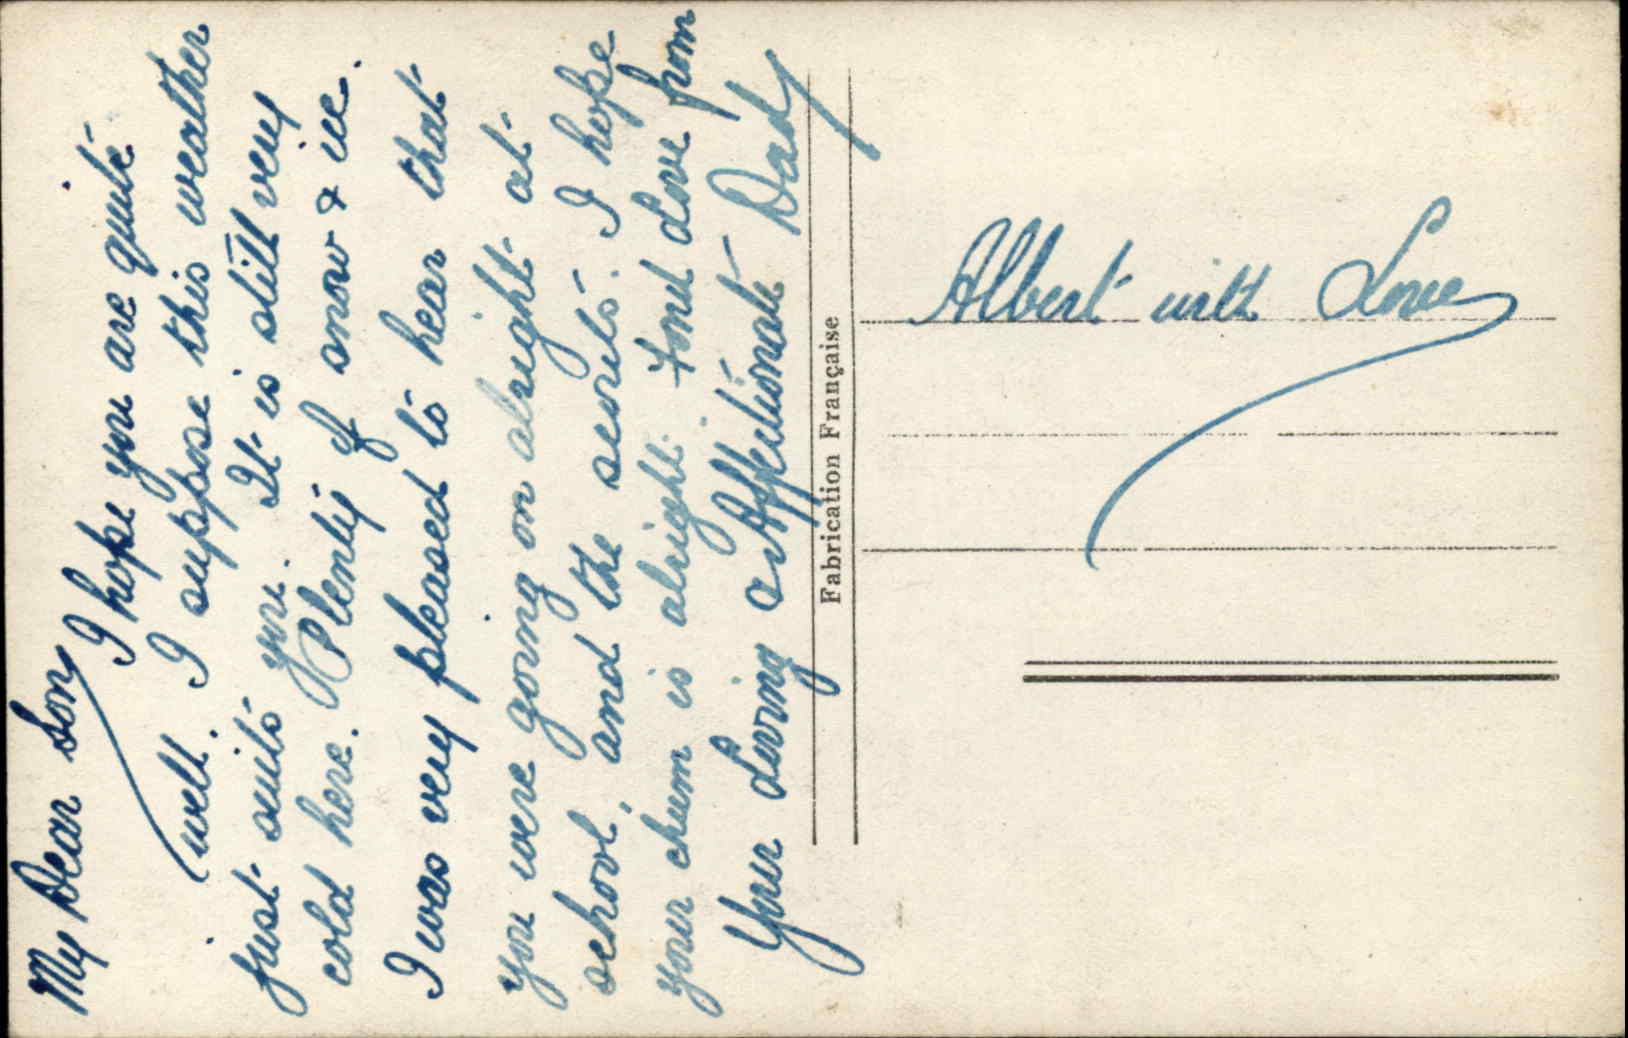 My Dear Son
I hope you are quite
well. I suppose this weather
just suits you. It is still very
cold here. Plenty of snow & ice.
I was very pleased to hear that
you were going on alright at
school, and the scouts. I hope
your chum is alright. Fond Love from
Your Loving & Affectionate Dad
Fabrication Française
Albert with Love